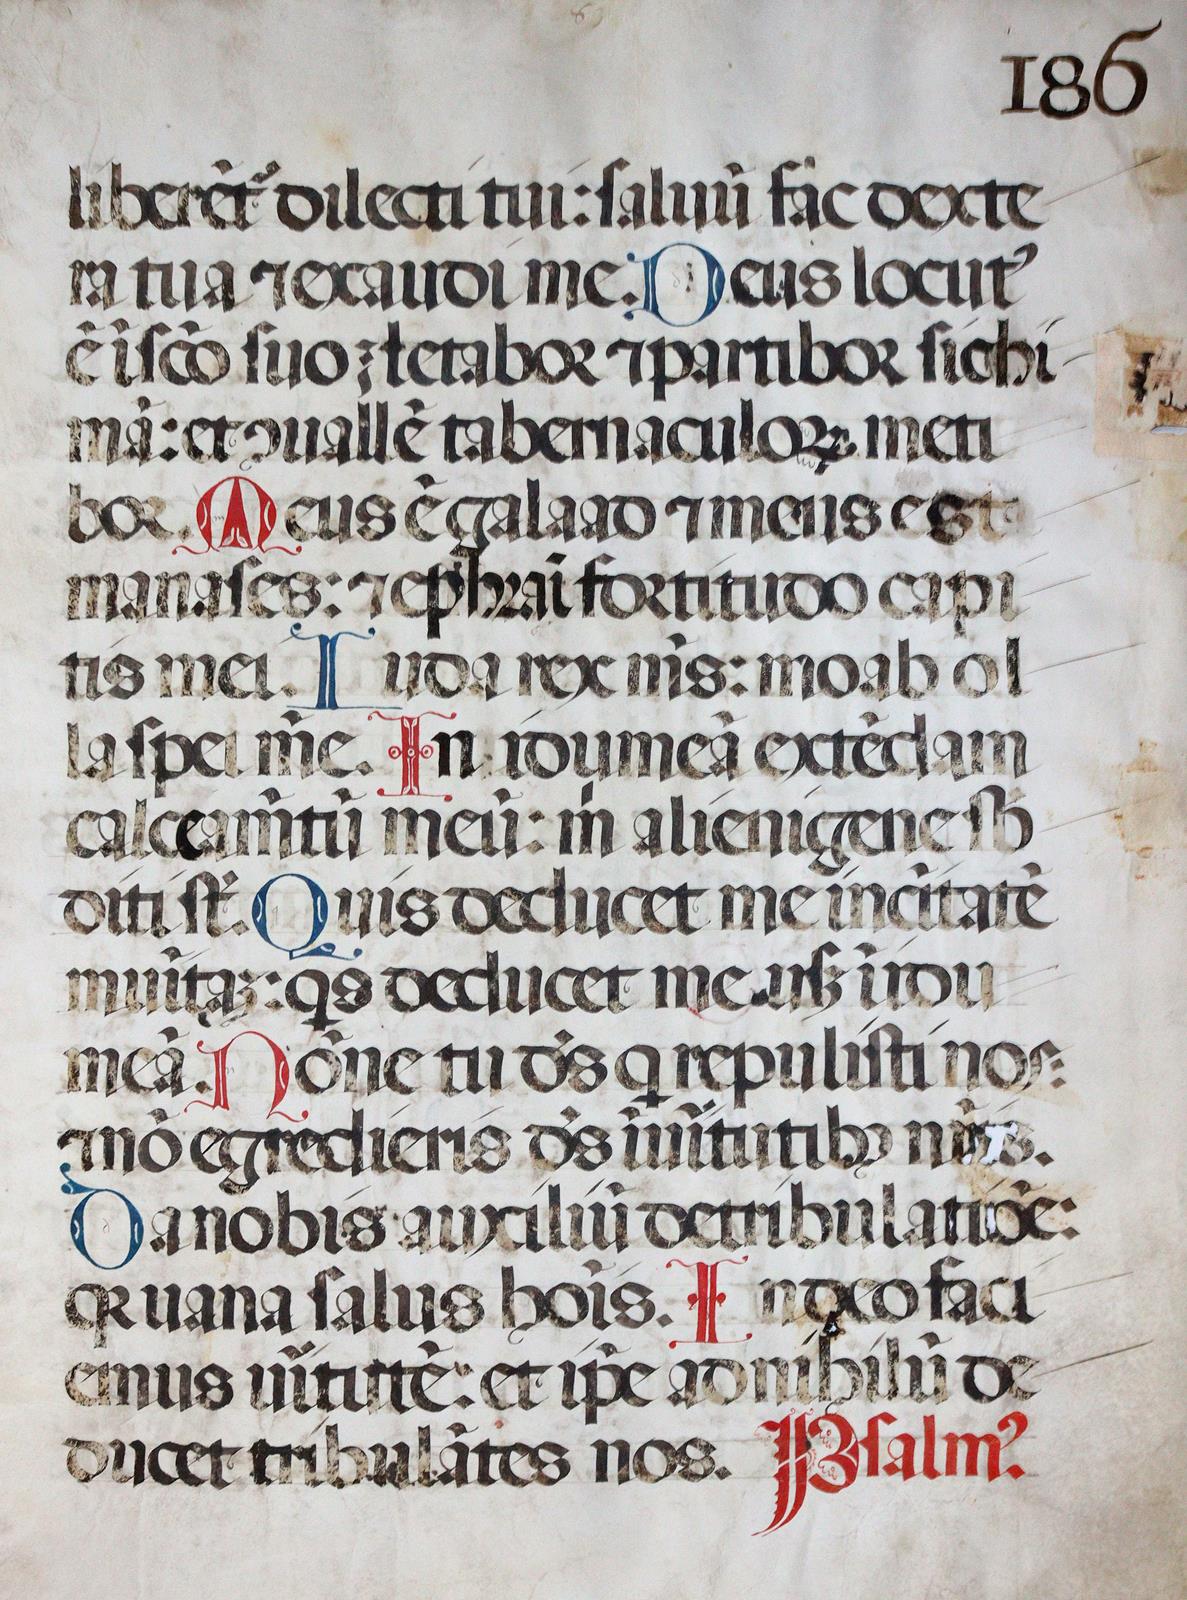 186
liberēt᷑ dilecti tui: saluū fac dexte
ra tua ⁊ exaudi me. Deus locutꝰ
ē ī sc̄o suo; letabor ⁊ partibor sichi
mā: et ꝯuallē tabernaculoꝝ meti
bor. Meus ē galaad ⁊ meus est
manases: ⁊ ephraī fortitudo capi
tis mei. Iuda rex m̄s: moab ol
la spei m̄e. In idumeā extēdam
calceam̄tū meū: m̄ alienigene sb̄
diti st̄. Quis deducet me ī cītatē
munītaꝫ: qs deducet me usꝫ ī idu
meā. Nōne tu ds̄ q repulisti nos:
⁊ nō egredieris ds̄ ī uīrtutibꝫ nr̄is.
Da nobis auxiliū de tribulatiōe:
qꝛ uana salus hoīs. In deo faci
emus uīrtutē: et ip̄e ad nihilū de
ducet tribulātes nos. Psalmꝰ.